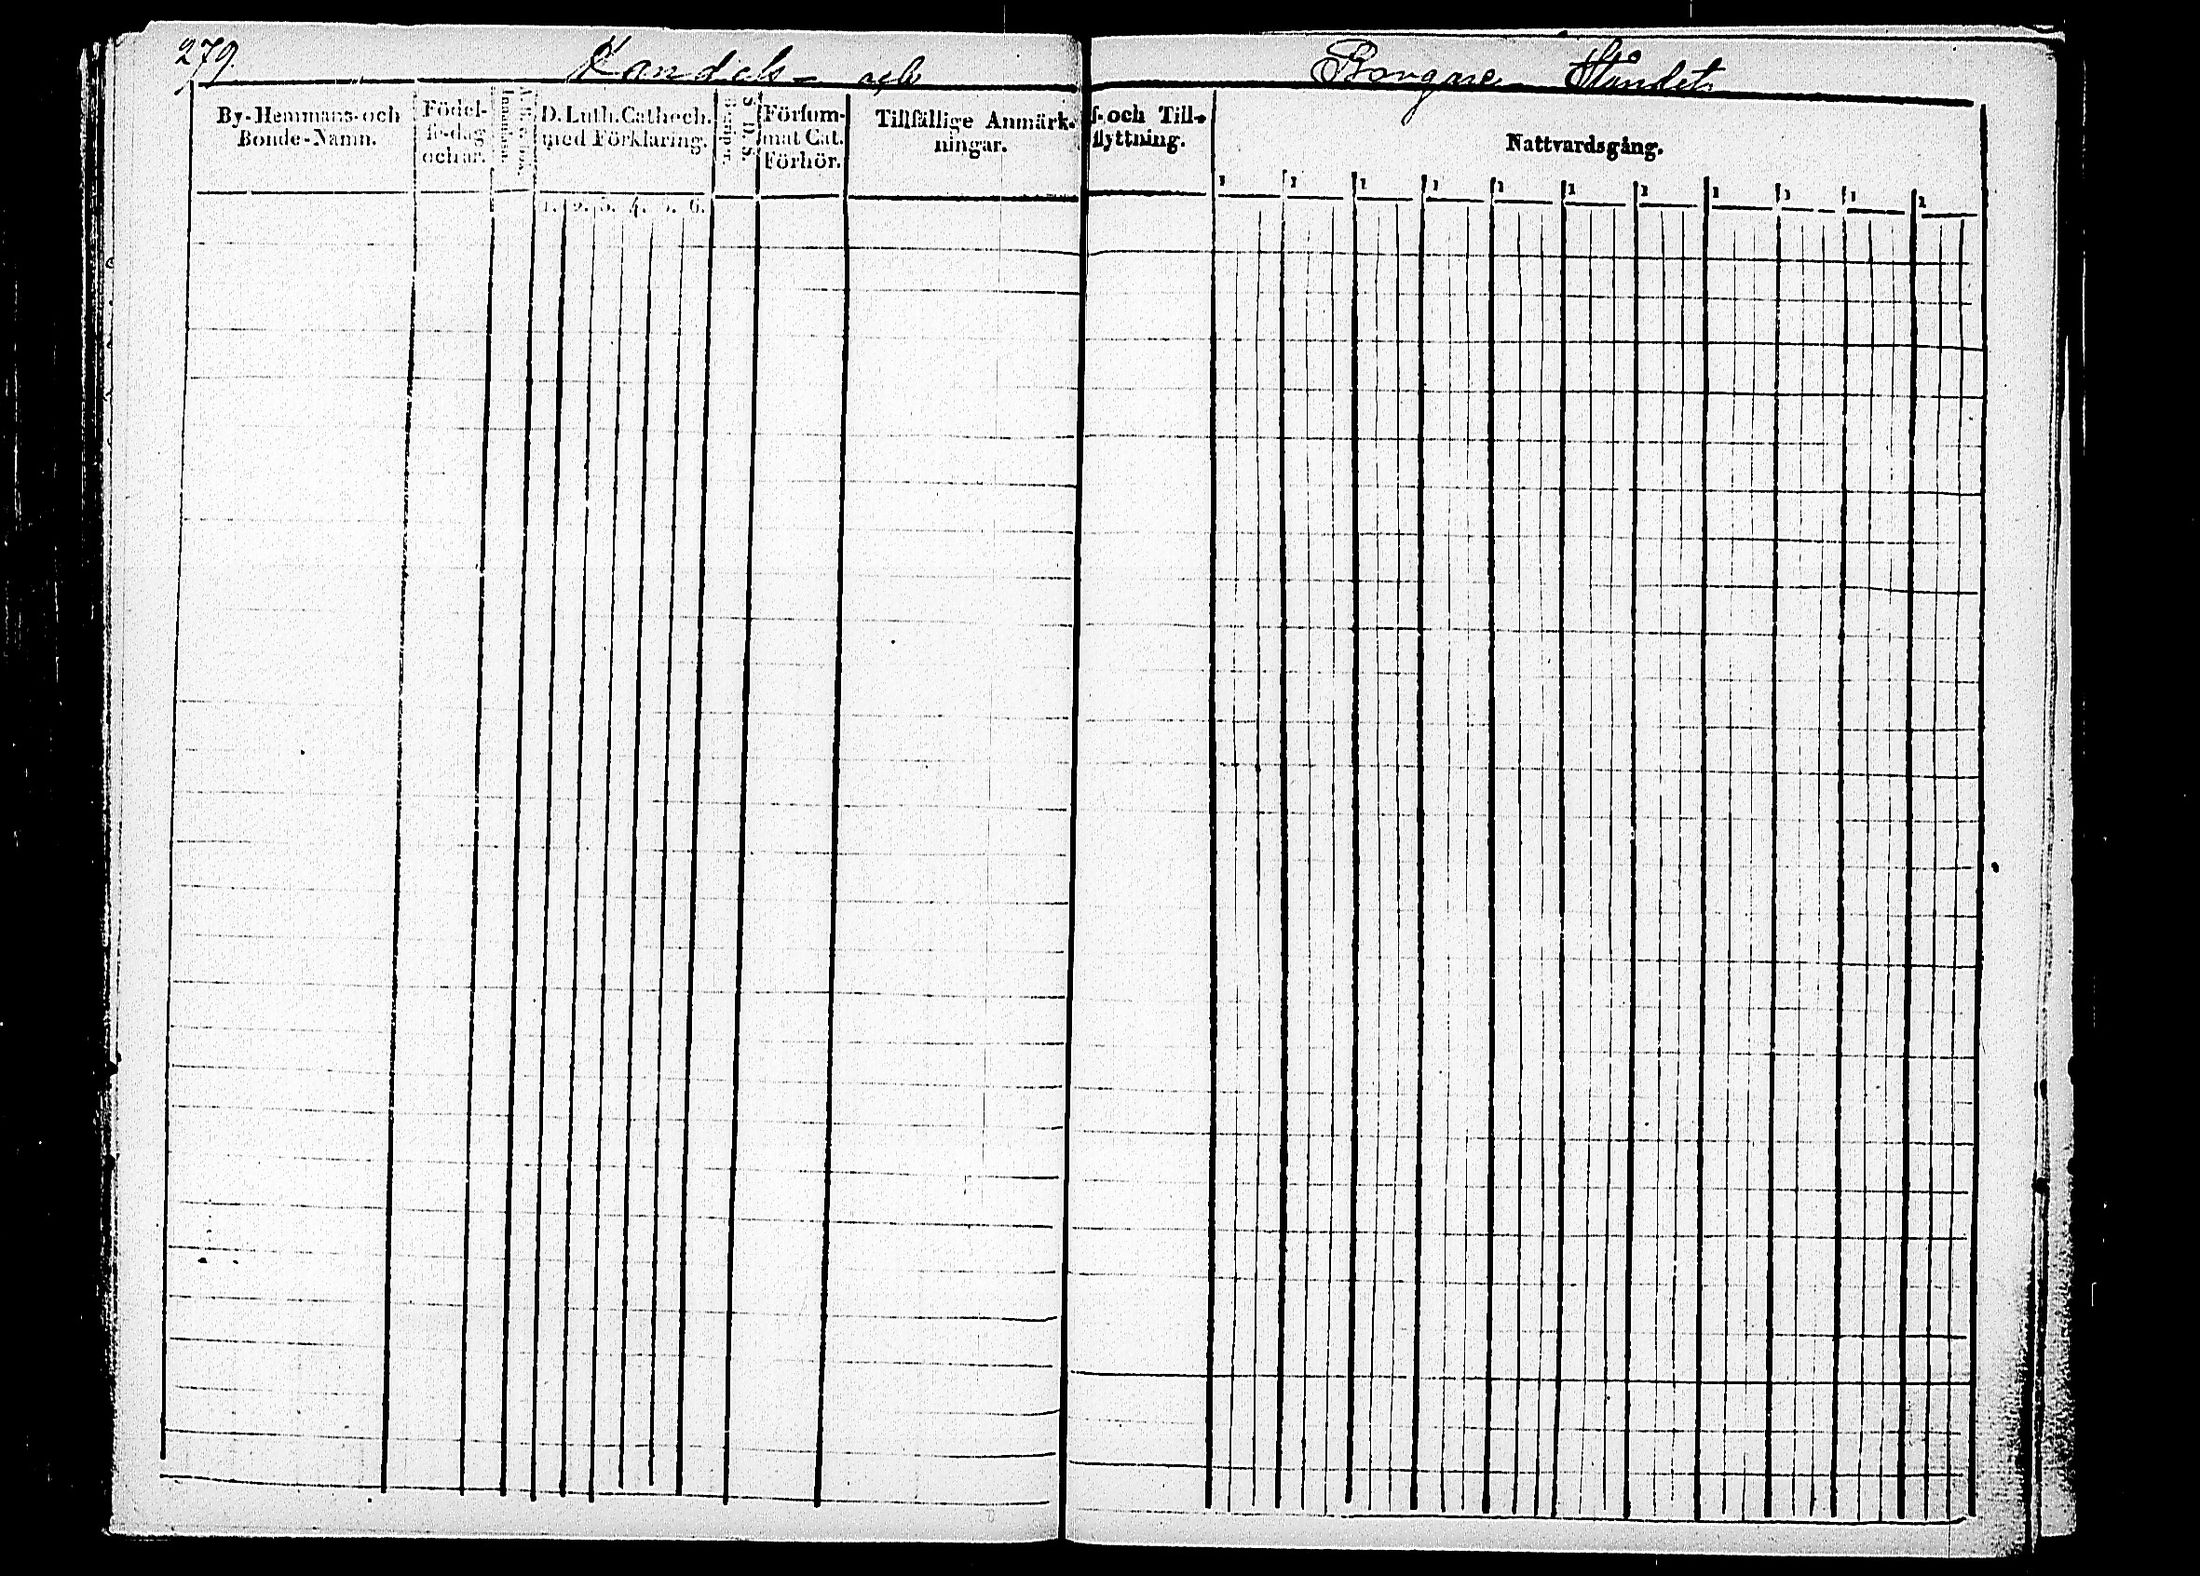 279.
Handels- och Borgare Ståndet.
By-Hemmans-och
Bonde-Namn.
Födel-
se-dag
och år.
Innanläsn.
D. Luth. Cathech.
med Förklaring.
1. 2. 3. 4. 5. 6.
S. D. S.
Försum-
mat Cat.
Förhör.
Tillfällige Anmärk-
ningar.
f- och Till-
flyttning.
Nattvardsgång.
1 1 1 1 1 1 1 1 1 1 1